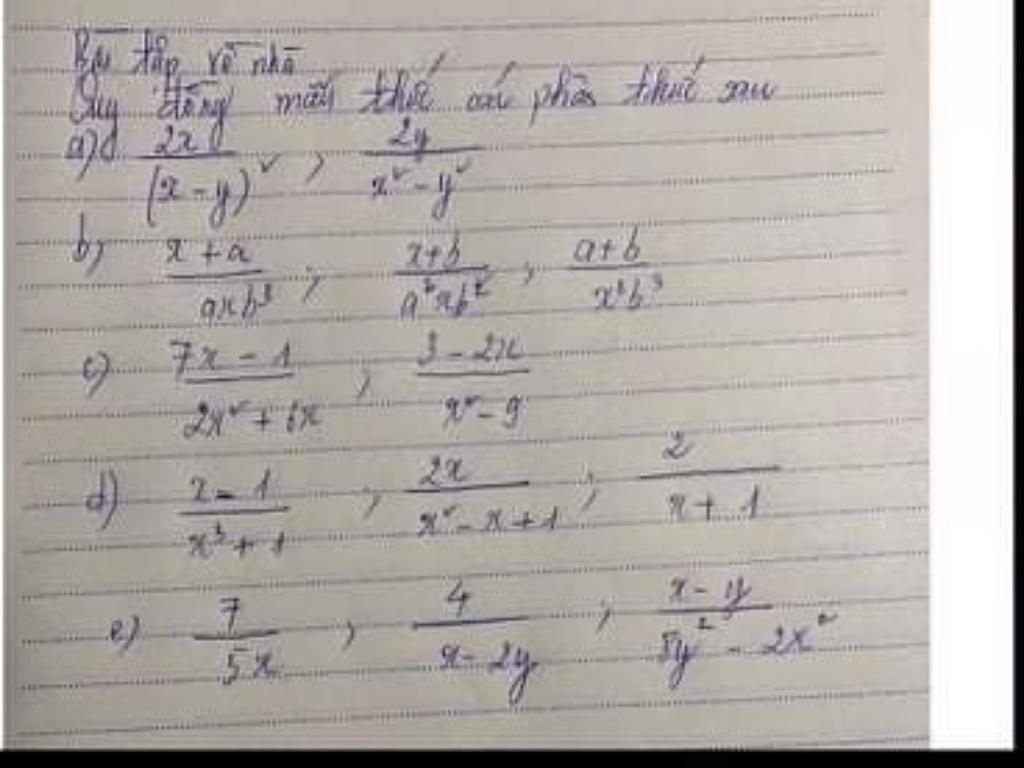 Bài tập về nhà
Quy đồng mẫu thức các phân thức sau
a) 2x/(x - y)² , 2y/(x² - y²)
b) (x + a)/(axb³) ; (x+b)/(a²xb²) , (a+b)/(x²b³)
c) (7x - 1)/(2x² + 6x) , (3 - 2x)/(x² - 9)
d) (x - 1)/(x³ + 1) , 2x/(x² - x + 1) ; 2/(x + 1)
e) 7/(5x) , 4/(x - 2y) ; (x - y)/(8y² - 2x²)